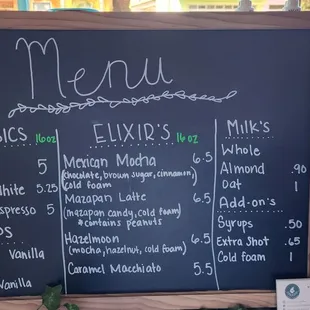 Menu
SICS 16oz
5
White 5.25
spresso 5
PS
Vanilla
Vanilla
ELIXIR'S 16oz
Mexican Mocha 6.5
(chocolate, brown sugar, cinnamon,
cold foam
Mazapan Latte 6.5
(mazapan candy, cold foam)
*contains peanuts
Hazelmoon 6.5
(mocha, hazelnut, cold foam)
Caramel Macchiato 5.5
Milk's
Whole
Almond .90
Oat 1
Add-on's
Syrups .50
Extra Shot .65
Cold foam 1